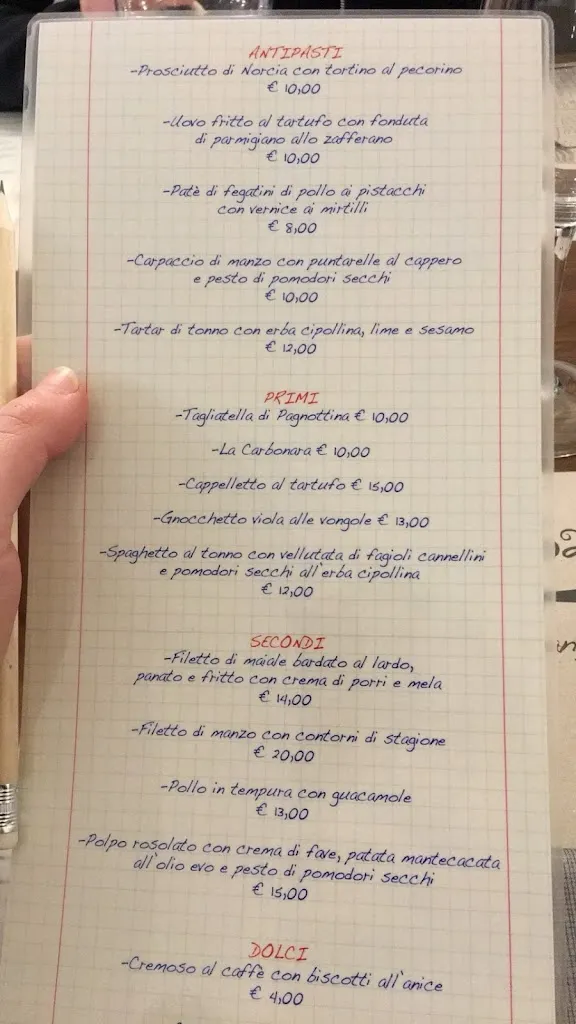 ANTIPASTI
-Prosciutto di Norcia con tortino al pecorino
€ 10,00
-Uovo fritto al tartufo con fonduta
di parmigiano allo zafferano
€ 10,00
-Patè di fegatini di pollo ai pistacchi
con vernice ai mirtilli
€ 8,00
-Carpaccio di manzo con puntarelle al cappero
e pesto di pomodori secchi
€ 10,00
-Tartar di tonno con erba cipollina, lime e sesamo
€ 12,00
PRIMI
-Tagliatella di Pagnottina € 10,00
-La Carbonara € 10,00
-Cappelletto al tartufo € 15,00
-Gnocchetto viola alle vongole € 13,00
-Spaghetto al tonno con vellutata di fagioli cannellini
e pomodori secchi all'erba cipollina
€ 12,00
SECONDI
-Filetto di maiale bardato al lardo,
panato e fritto con crema di porri e mela
€ 14,00
-Filetto di manzo con contorni di stagione
€ 20,00
-Pollo in tempura con guacamole
€ 13,00
-Polpo rosolato con crema di fave, patata mantecacata
all'olio evo e pesto di pomodori secchi
€ 15,00
DOLCI
-Cremoso al caffè con biscotti all'anice
€ 4,00